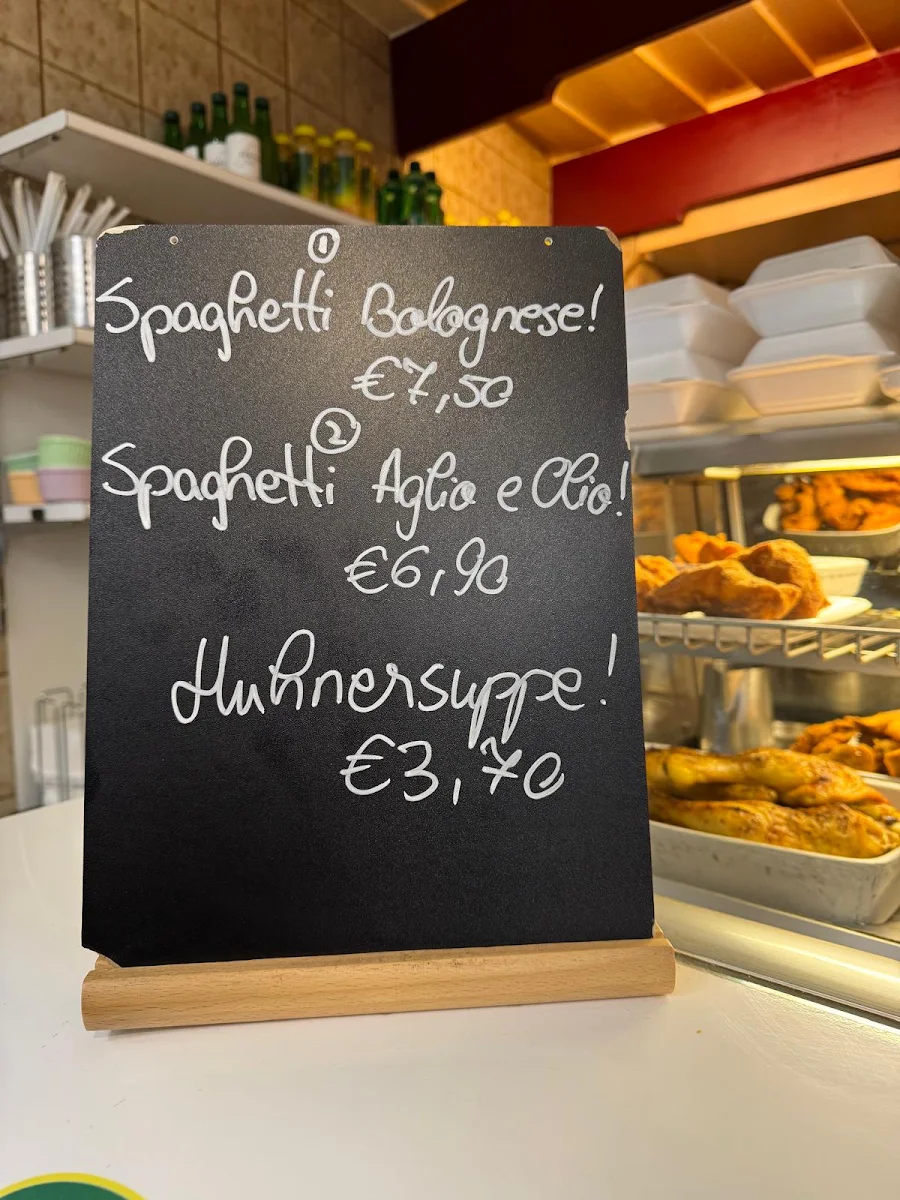 ①
Spaghetti Bolognese!
€7,50
②
Spaghetti Aglio e Olio!
€6,90
Huhnersuppe!
€3,70